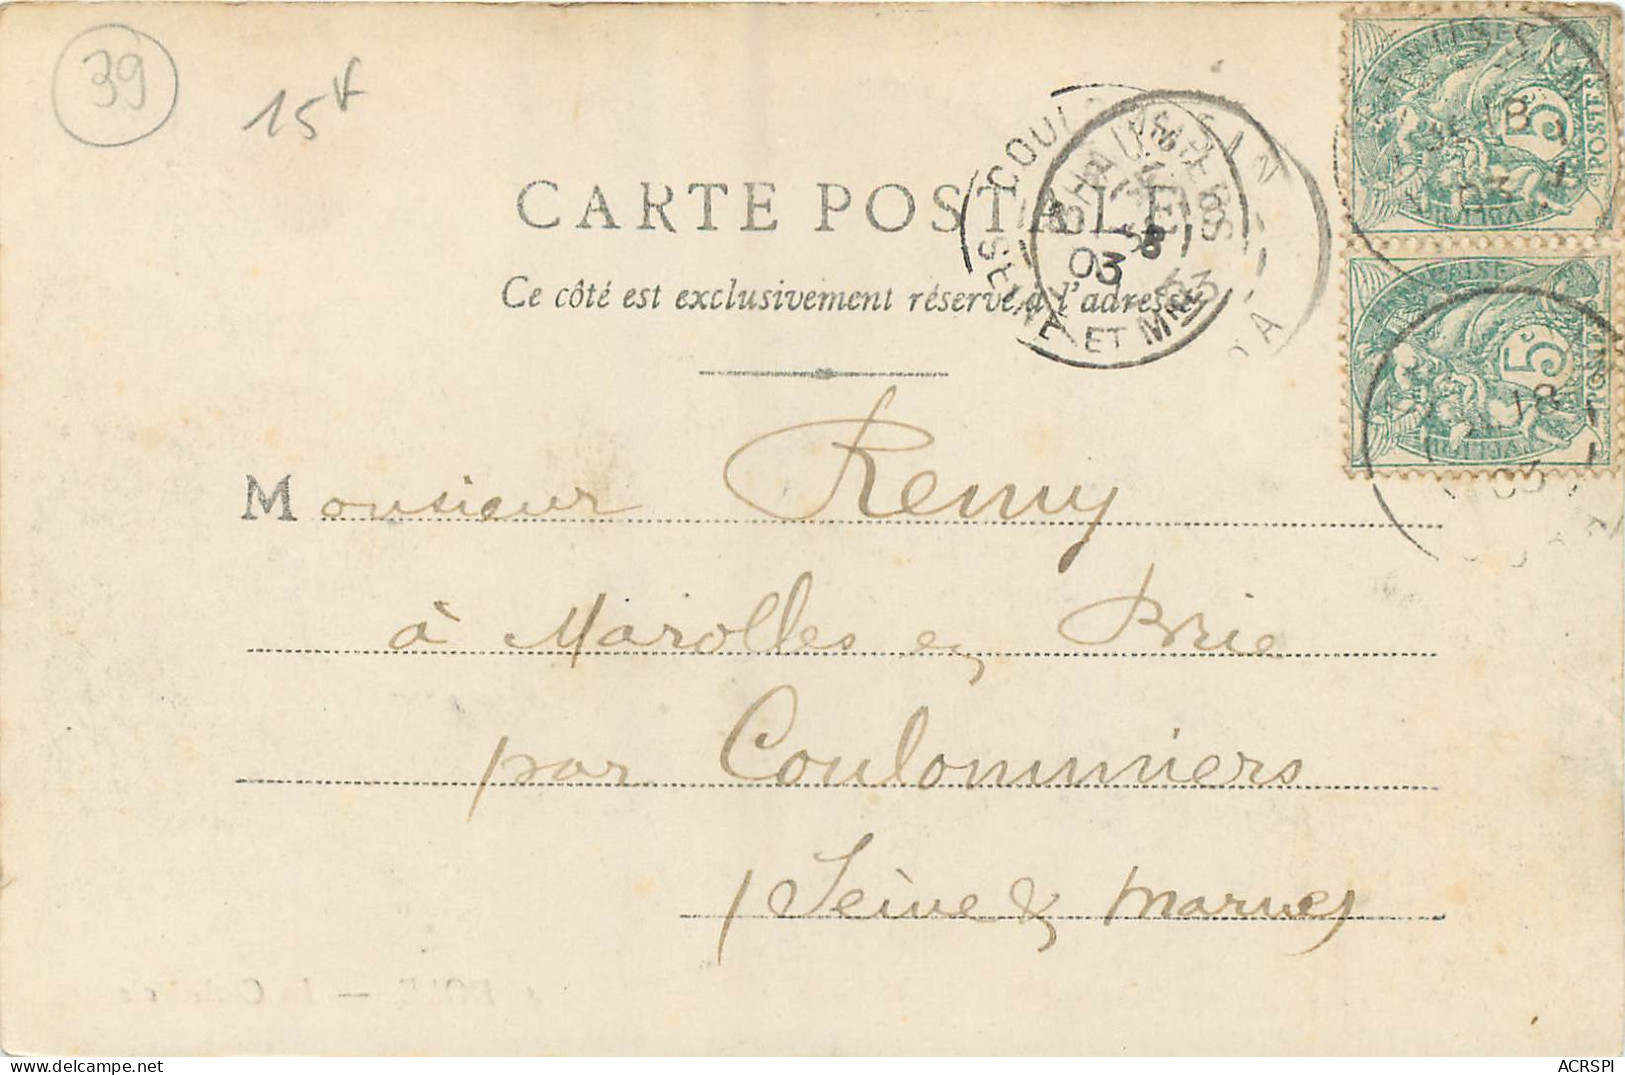 39
15f
CARTE POSTALE
Ce côté est exclusivement réservé à l'adresse
Monsieur Remy
à Marolles en Brie
par Coulommiers
(Seine & Marne)
COULOMMIERS
SEINE ET MNE
03
POSTES
5c
18
03
5c
18
03
ACRSPI